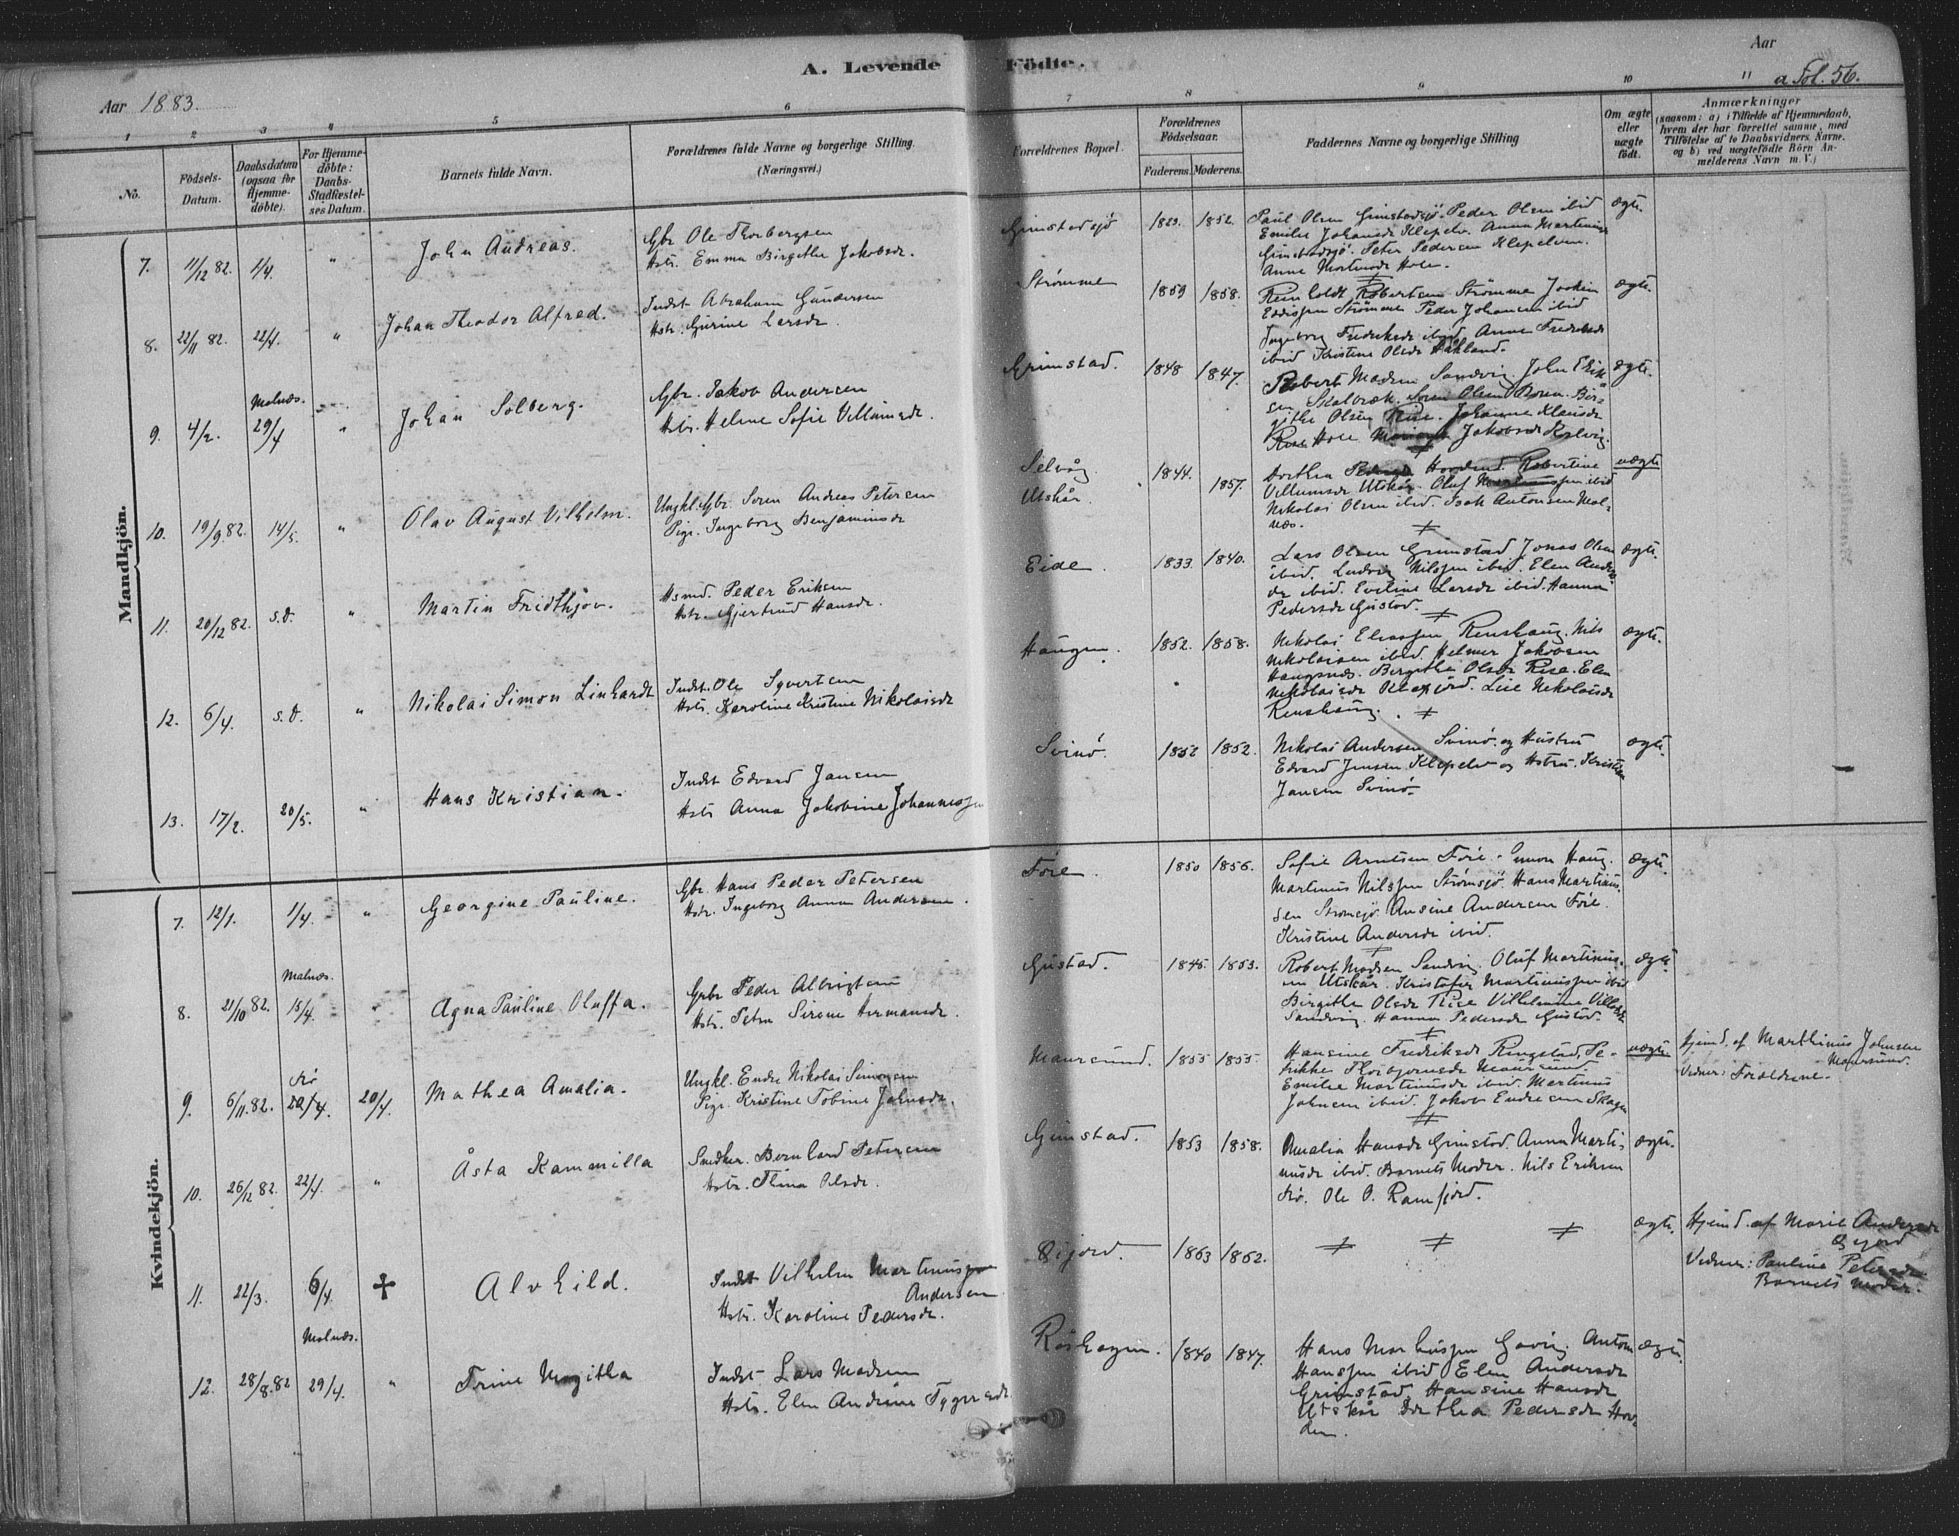 A. Levende Födte.
Aar
Aar 1883.
a Fol. 56.
1 2 3 4 5 6 7 8 9 10 11
No.
Födsels-Datum.
Daabsdatum (ogsaa for Hjemme-döbte).
For Hjemme-döbte: Daabs-Stadfæstel-ses Datum.
Barnets fulde Navn.
Forældrenes fulde Navne og borgerlige Stilling. (Næringsvei.)
Forældrenes Bopæl.
Forældrenes Födselsaar.
Faderens. Moderens.
Faddernes Navne og borgerlige Stilling
Om ægte eller uægte födt.
Anmærkninger
(saasom: a) i Tilfælde af Hjemmedaab, hvem der har forrettet samme, med Tilföielse af to Daabsvidners Navne. og b) ved uægtefödte Börn An-melderens Navn m. V.)
Mandkjön.
7. 11/12 82. 1/4. " John Andreas.
Gbr Ole Thorbergsen
Hstr. Emma Birgithe Jakobsdr.
Grimstadsjö 1823. 1852.
Paul Olsen Grimstadsjö. Peder Olsen ibid
Emilie Johansdr Klepelv. Anna Martinusdr
Grimstadsjö. Peter Pedersen Klepelven.
Anne Mortensdr Holm.
ægte.
8. 22/11 82. 22/4. " Johan Theodor Alfred.
Indst Abraham Gundersen
Hstr. Gurine Larsdr.
Strömme 1859 1858.
Reinholdt Robertsen Strömme Joakim
Eddissen Strömme Peder Johansen ibid
Ingeborg Fredriksdr ibid. Anne Fredriksdr
ibid Kristine Olsdr Hakland.
ægte.
9. 4/2. Malnæs. 29/4 " Johan Solberg.
Gbr. Jakob Andersen
Hstr. Helene Sofie Villumsdr.
Grimstad. 1848 1847.
Robert Madsen Sandvig. John Erik-
sen Skalbræk. Søren Olsen Roren. Bir-
githe Olsen Rise. Johanne Klausdr
Jakobsdr
ægte.
10. 19/9. 82. 14/5. " Olav August Vilholm.
Ungkl. Gbr. Søren Andreas Petersen
Pige. Ingeborg Benjaminsdr
Selvåg 1844.
Utskår. 1857.
Dorthea Robertine
Villumsdr Utskår. Oluf ibid
Nikolai Olsen ibid. Isak Antonsen Mal-
næs.
uægte
11. 20/12 82. s.d. " Martin Fridthjov.
Hsmd. Peder Eriksen
Hstr. Gjertrud Hansdr.
Eide. 1833. 1840.
Lars Olsen Grimstad Jonas Olsen
ibid. Ludvig Nilssen ibid. Elen Anders-
dr ibid. Eveline Larsdr ibid. Hanna
Pedersdr Gustad.
ægte.
12. 6/4. s.d. " Nikolai Simon Linhardt
Indst. Ole Syvertsen
Hstr. Karoline Kristine Nikolaisdr
Haugen. 1852. 1858.
Nikolai Eliassen Renshaug. Nils
Nikolaisen ibid. Helmer Jakobsen
Haugsnes. Birgithe Olsdr Rise. Elen
Nikolaisdr Lise Nikolaisdr
Renshaug.
ægte.
13. 17/2. 20/5. " Hans Kristian.
Indst Edvard Jansen
Hstr Anna Jakobine Johannessen
Svinö. 1852 1852.
Nikolai Andersen Svinö. og Hustru
Edvard Jensen Klepelv og Hstru. Kristen
Jansen Svinö.
ægte.
Kvindekjön.
7. 12/1. 1/4. " Georgine Pauline.
Gbr. Hans Peder Petersen
Hstr. Ingeborg Anna Andersen.
Före. 1850 1856.
Sofie Arntsen Före. Simon Haug.
Martinus Nilssen Strömsjö. Hans Martinus-
sen Strömsjö. Ansine Andersen Före.
Kristine Andersdr ibid.
ægte.
8. 21/10 82. Malnæs. 15/4. " Agna Pauline Oluffa.
Gbr Peder Albrigtsen
Hstr. Petra Sirene Hermansdr.
Gustad. 1845. 1853.
Robert Madsen Sandvig. Oluf Martinus-
sen Utskår. Kristofer Martinussen ibid
Birgithe Olsdr Rise Vilhelmine Villumsdr
Sandvig. Hanna Pedersdr Gustad.
ægte.
9. 6/11. 82. 20/4. 20/4. Mathea Amalia.
Ungkl. Endre Nikolai Simonsen
Pige. Kristine Tobine Johnsdr.
Maursund. 1855 1855.
Hansine Fredriksdr Ringstad. Pe-
trikke Thorbjörnsdr Maursund.
Emilie Martinusdr ibid. Martinus
Johnsen ibid. Jakob Endresen Skagen
uægte
Hjemd. af Marthinus Johnsen
Maursund.
Vidner: Forældrene.
10. 26/12 82. 22/4. " Åsta Kammilla
Snedker. Bernhard Petersen
Hstr. Thina Olsdr.
Grimstad. 1853 1858.
Amalia Hansdr Grimstad. Anna Marti-
nusdr ibid. Barnets Moder. Nils Eriksen
Frö. Ole O. Ramfjord.
ægte.
11. 22/3. 6/4. ✝ Alvhild.
Indst Vilhelm Martinussen
Andersen
Hstr. Karoline Pedersdr.
Öijord. 1863 1862.
ægte.
Hjemd. af Marie Andersdr
Öijord
Vidner: Pauline Petersdr
Barnets Moder.
12. 28/8. 82 Malnæs. 29/4. " Trine Magitha
Indst Lars Madsen
Hstr. Elen Andrine
Röshagen. 1840 1847.
Hans Markussen Govig. Anton
Hanssen ibid Elen Andersdr
Grimstad Hansine Hansdr
Utskår Dorthea Pedersdr Hov-
den.
ægte.